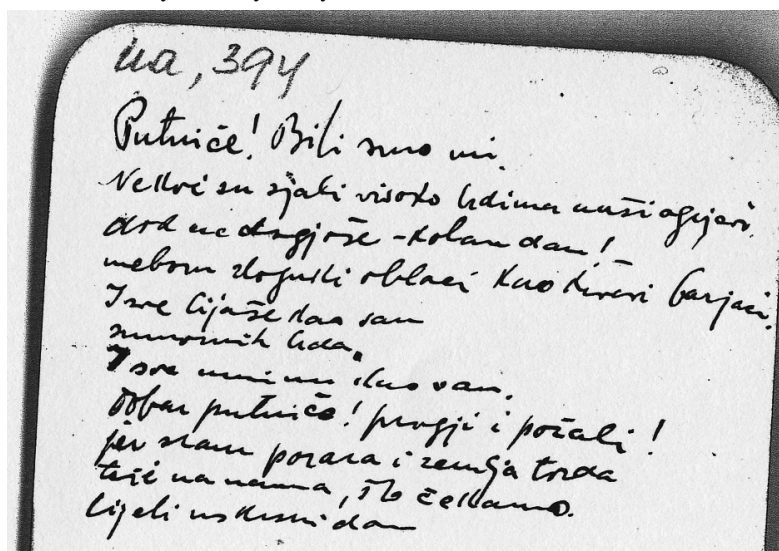 na, 394
Putniče! Bili smo mi.
Nekoć su sjali visoko hdima naši ognjevi.
dok ne dogjoše - koban dan!
nebom zloguki oblaci kao krvavi barjaci.
I sve bijaše kao san
sumornih hda.
I sve minu kao san.
Dobar putniče! progji i požali!
jer slam poraza i zemlja tvrda
tišti na nama, što čekamo.
Cijeli uskrsni dan